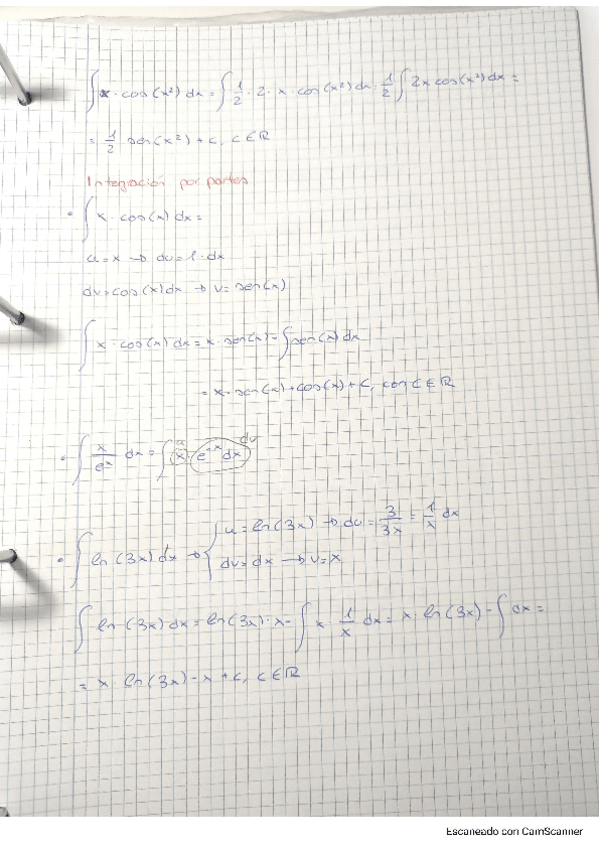 ∫ x · cos(x²) dx = ∫ 1/2 · 2 · x · cos(x²) dx = 1/2 ∫ 2x cos(x²) dx =
= 1/2 sen(x²) + C, C ∈ ℝ
Integración por partes
• ∫ x · cos(x) dx =
u = x → du = 1 · dx
dv = cos(x) dx → v = sen(x)
∫ x · cos(x) dx = x · sen(x) - ∫ sen(x) dx
= x · sen(x) + cos(x) + C, con C ∈ ℝ
• ∫ x/eˣ dx = ∫ x · e⁻ˣ dx
u dv
• ∫ ln(3x) dx → { u = ln(3x) → du = 3/3x = 1/x dx
dv = dx → v = x
∫ ln(3x) dx = ln(3x) · x - ∫ x · 1/x dx = x · ln(3x) - ∫ dx =
= x · ln(3x) - x + C, C ∈ ℝ
Escaneado con CamScanner